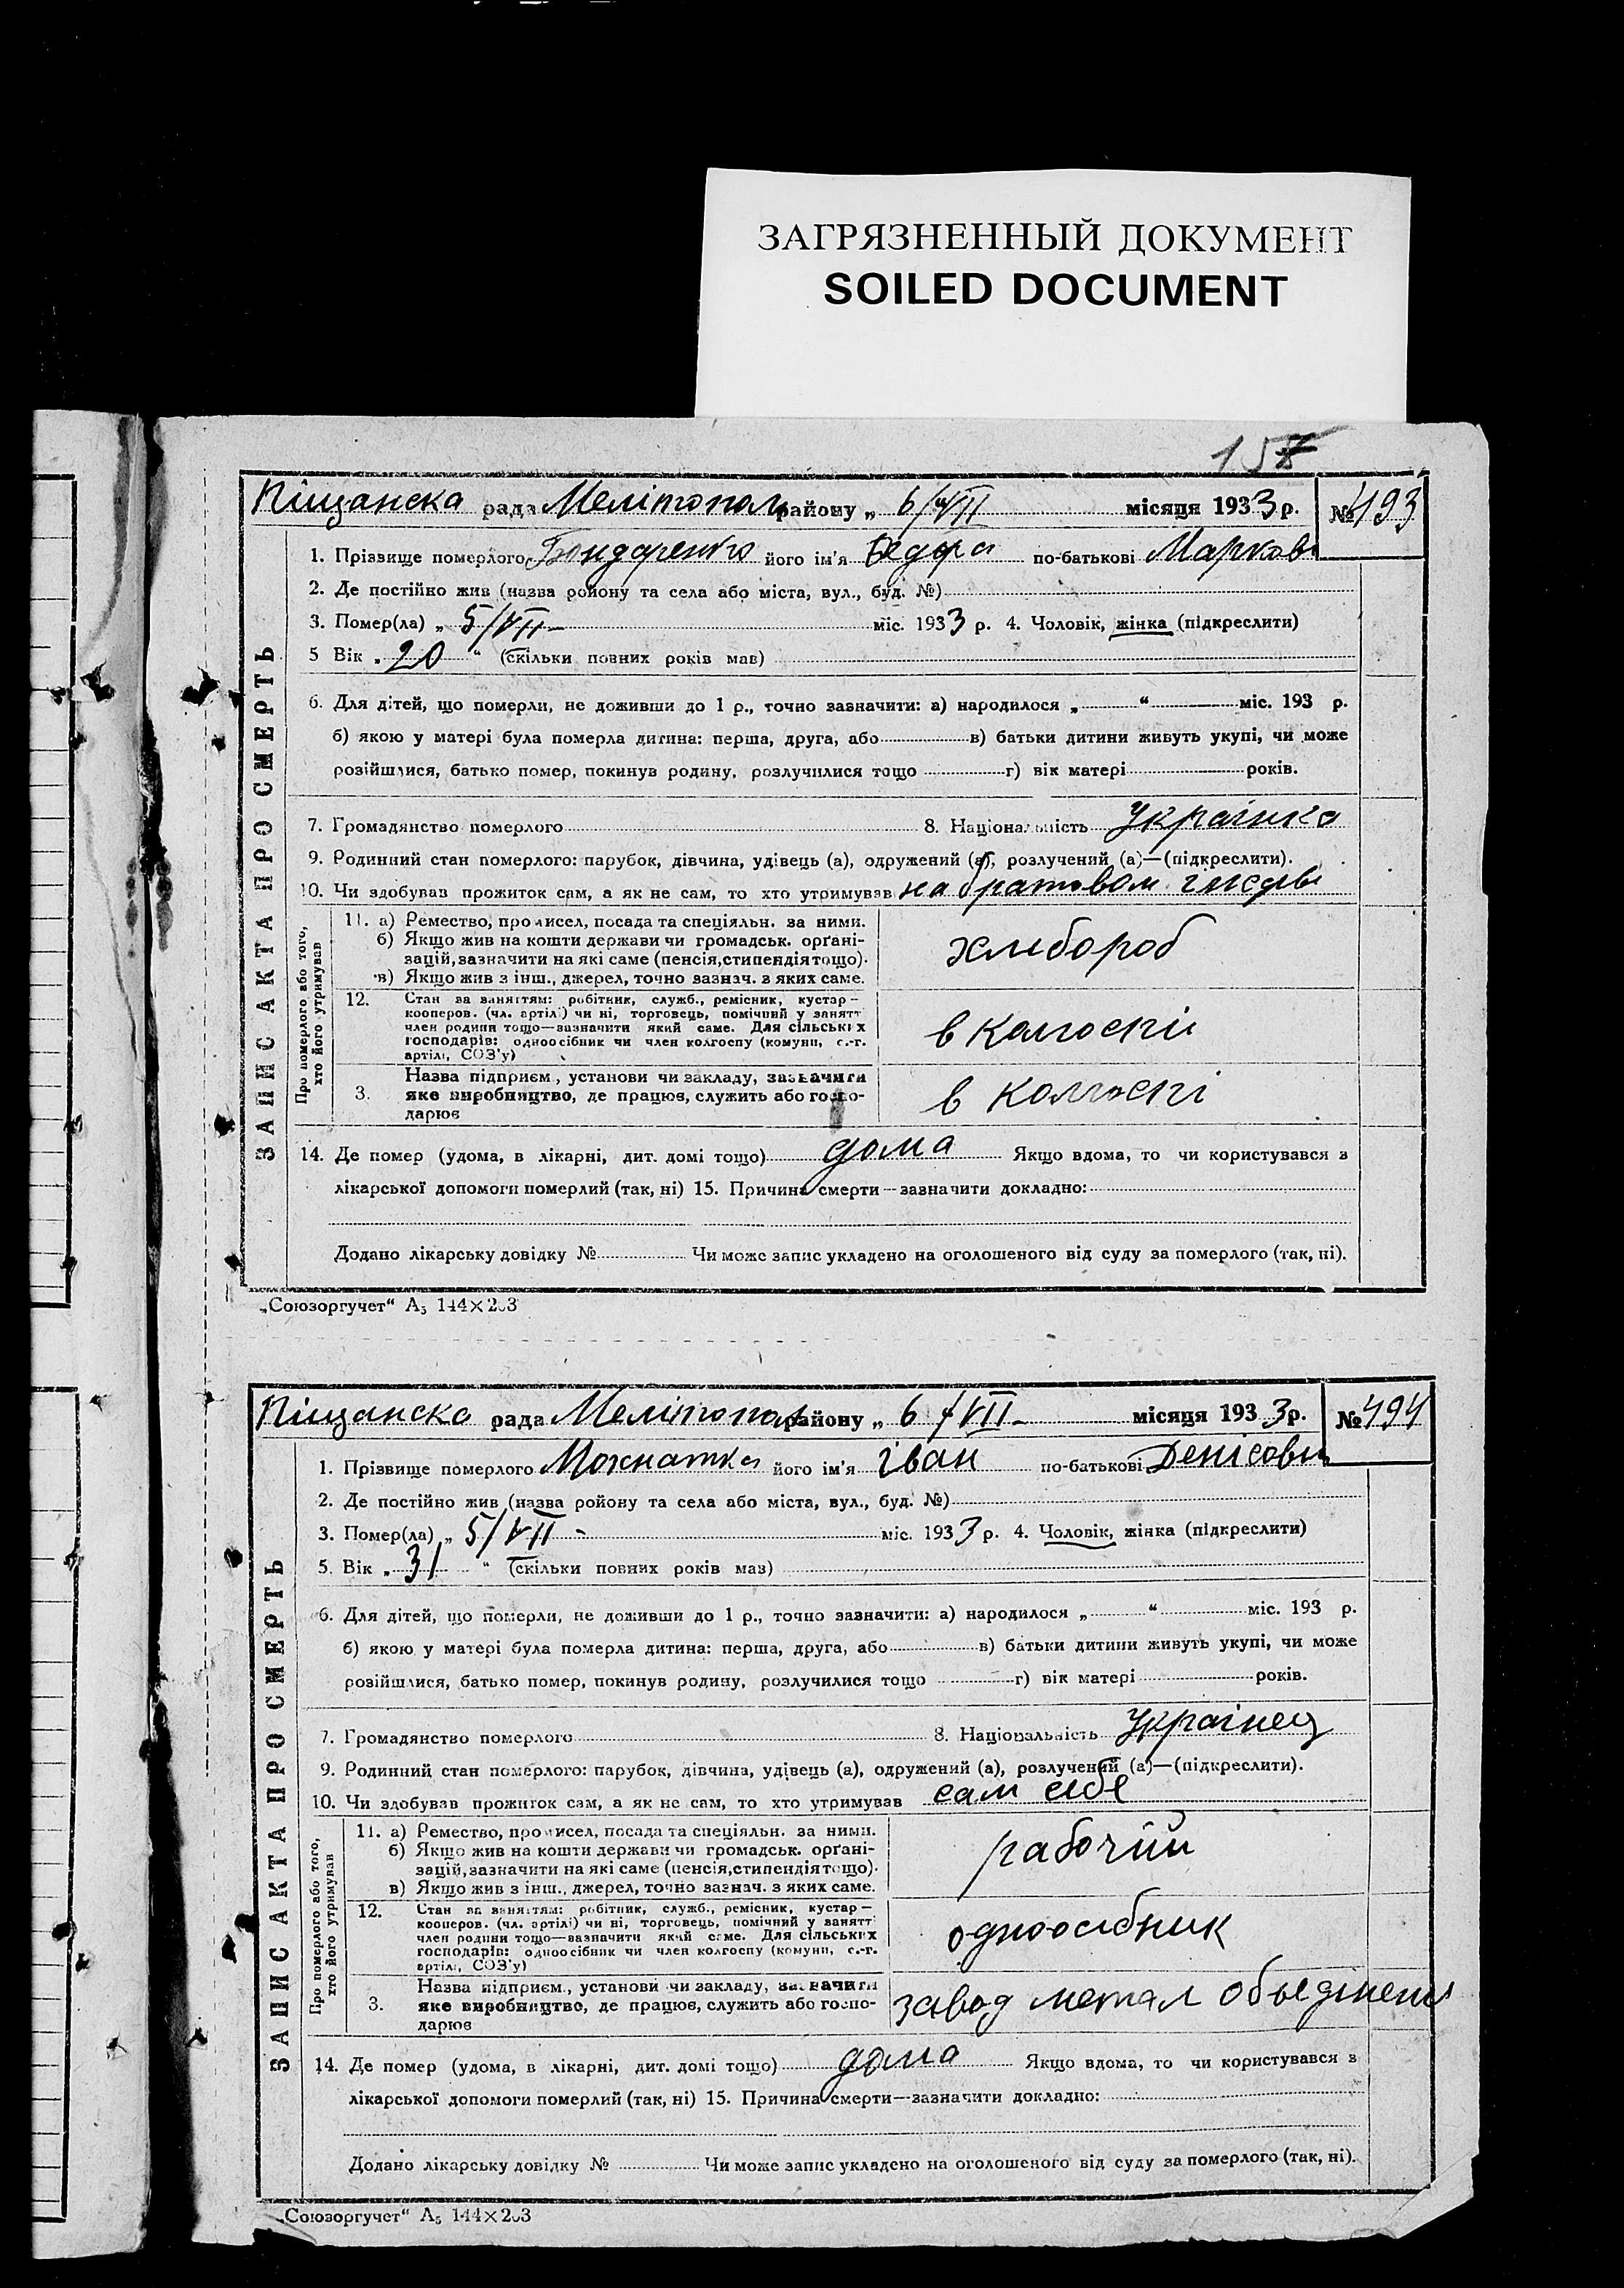 ЗАГРЯЗНЕННЫЙ ДОКУМЕНТ
SOILED DOCUMENT
157
Піщанска рада Мелітопол району „ 6/VII місяця 1933 р. № 493
ЗАПИС АКТА ПРО СМЕРТЬ
1. Прізвище померлого Бондаренко його ім'я Федора по-батькові Маркова
2. Де постійно жив (назва району та села або міста, вул., буд. №)
3. Помер(ла) „ 5/VII – міс. 1933 р. 4. Чоловік, жінка (підкреслити)
5 Вік „ 20 “ (скільки повних років мав)
6. Для дітей, що померли, не доживши до 1 р., точно зазначити: а) народилося „ “ міс. 193 р.
б) якою у матері була померла дитина: перша, друга, або в) батьки дитини живуть укупі, чи може
розійшлися, батько помер, покинув родину, розлучилися тощо г) вік матері років.
7. Громадянство померлого 8. Національність Українка
9. Родинний стан померлого: парубок, дівчина, удівець (а), одружений (а), розлучений (а)—(підкреслити).
10. Чи здобував прожиток сам, а як не сам, то хто утримував на братовом
Про померлого або того, хто його утримував
11. а) Ремество, промисел, посада та спеціяльн. за ними.
б) Якщо жив на кошти держави чи громадськ. органі-
зацій, зазначити на які саме (пенсія, стипендія тощо).
в) Якщо жив з інш., джерел, точно зазнач. з яких саме.
хлібороб
12. Стан за заняттям: робітник, служб., ремісник, кустар—
кооперов. (чл. артілі) чи ні, торговець, помічний у занятт
член родини тощо—зазначити який саме. Для сільських
господарів: одноосібник чи член колгоспу (комуни, с.-г.
артілі, СОЗ'у)
в колгоспі
3. Назва підприєм., установи чи закладу, зазначити
яке виробництво, де працює, служить або госпо-
дарює
в колгоспі
14. Де помер (удома, в лікарні, дит. домі тощо) дома Якщо вдома, то чи користувався з
лікарської допомоги померлий (так, ні) 15. Причина смерти—зазначити докладно:
Додано лікарську довідку № Чи може запис укладено на оголошеного від суду за померлого (так, ні).
„Союзоргучет“ А5 144×203
Піщанска рада Мелітопол району „ 6/VII – місяця 1933 р. № 494
ЗАПИС АКТА ПРО СМЕРТЬ
1. Прізвище померлого Мохнатка його ім'я Іван по-батькові Денісович
2. Де постійно жив (назва району та села або міста, вул., буд. №)
3. Помер(ла) „ 5/VII – міс. 1933 р. 4. Чоловік, жінка (підкреслити)
5. Вік „ 31 “ (скільки повних років мав)
6. Для дітей, що померли, не доживши до 1 р., точно зазначити: а) народилося „ “ міс. 193 р.
б) якою у матері була померла дитина: перша, друга, або в) батьки дитини живуть укупі, чи може
розійшлися, батько помер, покинув родину, розлучилися тощо г) вік матері років.
7. Громадянство померлого 8. Національність Українец
9. Родинний стан померлого: парубок, дівчина, удівець (а), одружений (а), розлучений (а)—(підкреслити).
10. Чи здобував прожиток сам, а як не сам, то хто утримував сам себе
Про померлого або того, хто його утримував
11. а) Ремество, промисел, посада та спеціяльн. за ними.
б) Якщо жив на кошти держави чи громадськ. органі-
зацій, зазначити на які саме (пенсія, стипендія тощо).
в) Якщо жив з інш., джерел, точно зазнач. з яких саме.
рабочий
12. Стан за заняттям: робітник, служб., ремісник, кустар—
кооперов. (чл. артілі) чи ні, торговець, помічний у занятт
член родини тощо—зазначити який саме. Для сільських
господарів: одноосібник чи член колгоспу (комуни, с.-г.
артілі, СОЗ'у)
одноосібник
3. Назва підприєм., установи чи закладу, зазначити
яке виробництво, де працює, служить або госпо-
дарює
завод метал
14. Де помер (удома, в лікарні, дит. домі тощо) дома Якщо вдома, то чи користувався з
лікарської допомоги померлий (так, ні) 15. Причина смерти—зазначити докладно:
Додано лікарську довідку № Чи може запис укладено на оголошеного від суду за померлого (так, ні).
„Союзоргучет“ А5 144×203